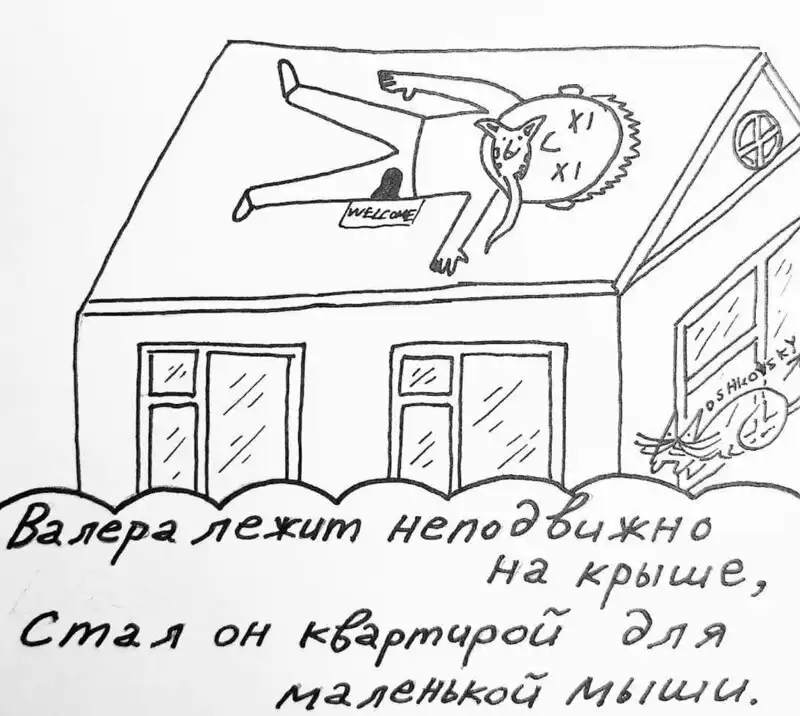 XI
XI
WELCOME
OSHKOVSKY
Валера лежит неподвижно
на крыше,
Стал он квартирой для
маленькой мыши.